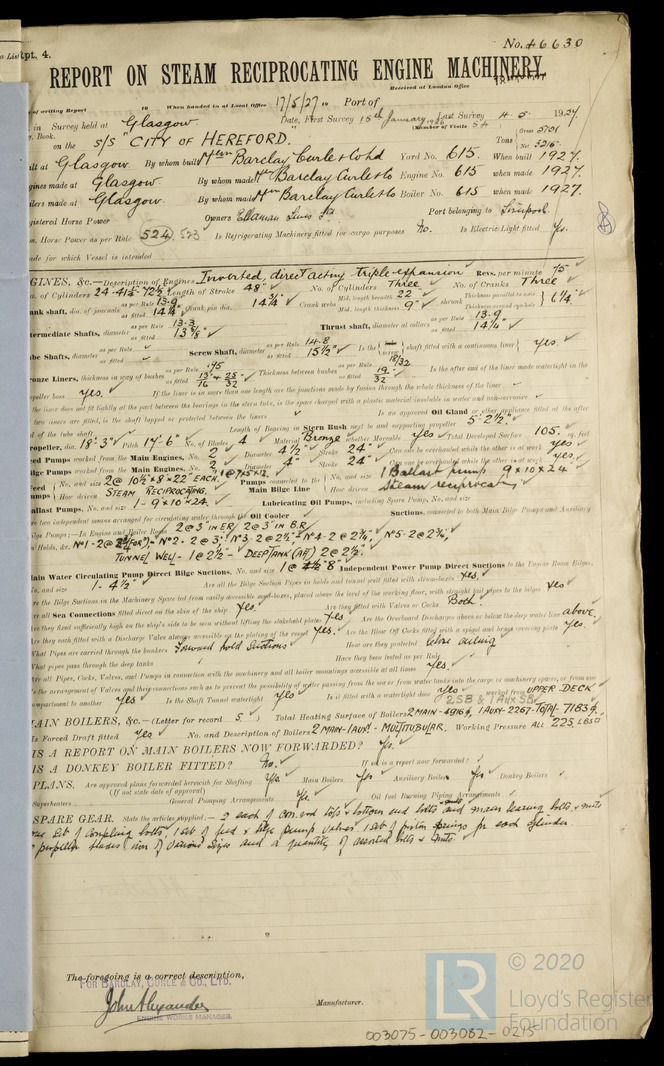 Rpt. 4.
No. 46630
REPORT ON STEAM RECIPROCATING ENGINE MACHINERY
Received at London Office
of writing Report 19 When handed in at Local Office 17/5/27 19 Port of
in Survey held at Glasgow Date, First Survey 15th January 1926 Last Survey 4-5-1927
Book. (Number of Visits 54
on the S/S "CITY OF HEREFORD." Tons Gross
Net
Glasgow By whom built Barclay Curle & Co Ltd Yard No. 615. When built 1927.
made at Glasgow. By whom made Barclay Curle & Co Engine No. 615 when made 1927.
made at Glasgow. By whom made Barclay Curle & Co Boiler No. 615 when made 1927.
Registered Horse Power Owners Ellerman Lines Ld. Port belonging to Liverpool.
Horse Power as per Rule 524. 523 Is Refrigerating Machinery fitted for cargo purposes No. Is Electric Light fitted Yes.
for which Vessel is intended
ENGINES, &c.—Description of Engines Inverted, direct acting triple expansion Revs. per minute 75
of Cylinders 24-41½-72½ Length of Stroke 48" No. of Cylinders Three No. of Cranks Three
shaft, dia. of journals as per Rule 13.9 as fitted 14¼" Crank pin dia. 14¾" Crank webs Mid. length breadth 22" Mid. length thickness 9" shrunk Thickness parallel to axis Thickness around eye-hole
Intermediate Shafts, diameter as per Rule 13.3 as fitted 13⅝" Thrust shaft, diameter at collars as per Rule 13.9 as fitted 14¼"
Tube Shafts, diameter as per Rule as fitted Screw Shaft, diameter as per Rule 14.8 as fitted 15½" Is the shaft fitted with a continuous liner Yes.
Bronze Liners, thickness in way of bushes as per Rule as fitted Thickness between bushes as per Rule as fitted 19/32 Is the after end of the liner made watertight in the
propeller boss Yes. If the liner is in more than one length are the junctions made by fusion through the whole thickness of the liner
the liner does not fit tightly at the part between the bearings in the stern tube, is the space charged with a plastic material insoluble in water and non-corrosive
two liners are fitted, is the shaft lapped or protected between the liners Is an approved Oil Gland or other appliance fitted at the after
end of the tube shaft Length of Bearing in Stern Bush next to and supporting propeller 5'-2½"
Propeller, dia. 18'-3" Pitch 17'-6" No. of Blades 4 Material Bronze whether Moveable Yes Total Developed Surface 105. sq. feet
Feed Pumps worked from the Main Engines, No. 2 Diameter 4½" Stroke 24" Can one be overhauled while the other is at work Yes
Bilge Pumps worked from the Main Engines, No. 2 Diameter 4" Stroke 24" Can one be overhauled while the other is at work Yes.
Feed Pumps No. and size 2 @ 10½"×8"×22" EACH. Pumps connected to the Main Bilge Line No. and size 1 Ballast pump 9×10×24
How driven STEAM RECIPROCATING. How driven Steam reciprocating
Ballast Pumps, No. and size 1-9"×10"×24. Lubricating Oil Pumps, including Spare Pump, No. and size
two independent means arranged for circulating water through the Oil Cooler Suctions, connected to both Main Bilge Pumps and Auxiliary
Bilge Pumps;—In Engine and Boiler Room 2 @ 3" IN ER/ 2 @ 3" IN B.R.
Holds, &c. N°2-2 @ 3"; N°3-2 @ 2½"- N°4-2 @ 2¾"; N°5-2 @ 2¾";
TUNNEL WELL-1 @ 2½"- DEEP TANK (AFT) 2 @ 2½".
Main Water Circulating Pump Direct Bilge Suctions, No. and size 1 @ 8" Independent Power Pump Direct Suctions to the Engine Room Bilges,
No. and size 1-4½" Are all the Bilge Suction Pipes in holds and tunnel well fitted with strum-boxes Yes.
Are the Bilge Suctions in the Machinery Space led from easily accessible mud-boxes, placed above the level of the working floor, with straight tail pipes to the bilges Yes
Are all Sea Connections fitted direct on the skin of the ship Yes Are they fitted with Valves or Cocks Both.
Are they fixed sufficiently high on the ship's side to be seen without lifting the stokehold plates Yes Are the Overboard Discharges above or below the deep water line above.
Are they each fitted with a Discharge Valve always accessible on the plating of the vessel Yes. Are the Blow Off Cocks fitted with a spigot and brass covering plate Yes.
What Pipes are carried through the bunkers Forward hold suctions How are they protected close ceiling
What pipes pass through the deep tanks Have they been tested as per Rule
Are all Pipes, Cocks, Valves, and Pumps in connection with the machinery and all boiler mountings accessible at all times Yes.
Is the arrangement of Valves and their connections such as to prevent the possibility of water passing from the sea or from water tanks into the cargo or machinery spaces, or from one
compartment to another Yes Is the Shaft Tunnel watertight Yes Is it fitted with a watertight door Yes worked from UPPER DECK
2SB & 1 AUX SB
MAIN BOILERS, &c.—(Letter for record S ) Total Heating Surface of Boilers 2 MAIN-4916, 1 AUX-2267-TOTAL-7183
Is Forced Draft fitted Yes No. and Description of Boilers 2 MAIN-1 AUX.- MULTITUBULAR. Working Pressure ALL 225 LBS
IS A REPORT ON MAIN BOILERS NOW FORWARDED? Yes.
IS A DONKEY BOILER FITTED? No. If so, is a report now forwarded?
PLANS. Are approved plans forwarded herewith for Shafting Yes Main Boilers Yes Auxiliary Boilers Yes Donkey Boilers
(If not state date of approval)
Superheaters General Pumping Arrangements Yes Oil fuel Burning Piping Arrangements
SPARE GEAR. State the articles supplied:— 2 each of con. rod top & bottom end bolts and main bearing bolts & nuts
one set of coupling bolts, 1 set of feed & bilge pump valves 1 set of piston springs for each cylinder.
propeller blades iron of various sizes and a quantity of assorted bolts & nuts
The foregoing is a correct description,
FOR BARCLAY, CURLE & CO., LTD.
John Alexander
ENGINE WORKS MANAGER.
Manufacturer.
LR
© 2020
Lloyd's Register
Foundation
003075-003082-0215